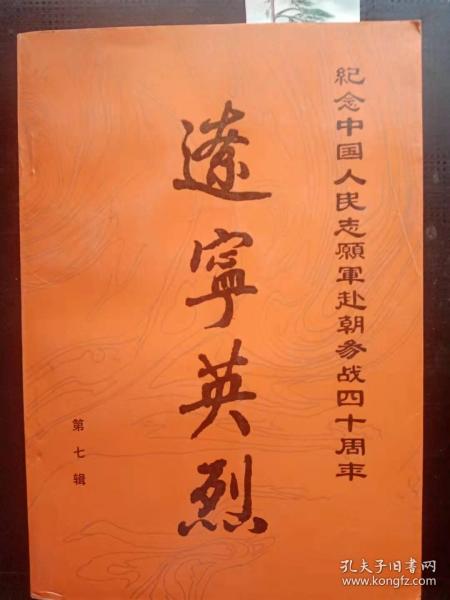 紀念中国人民志願軍赴朝参战四十周年
遼寧英烈
第七辑
孔夫子旧书网
www.kongfz.com